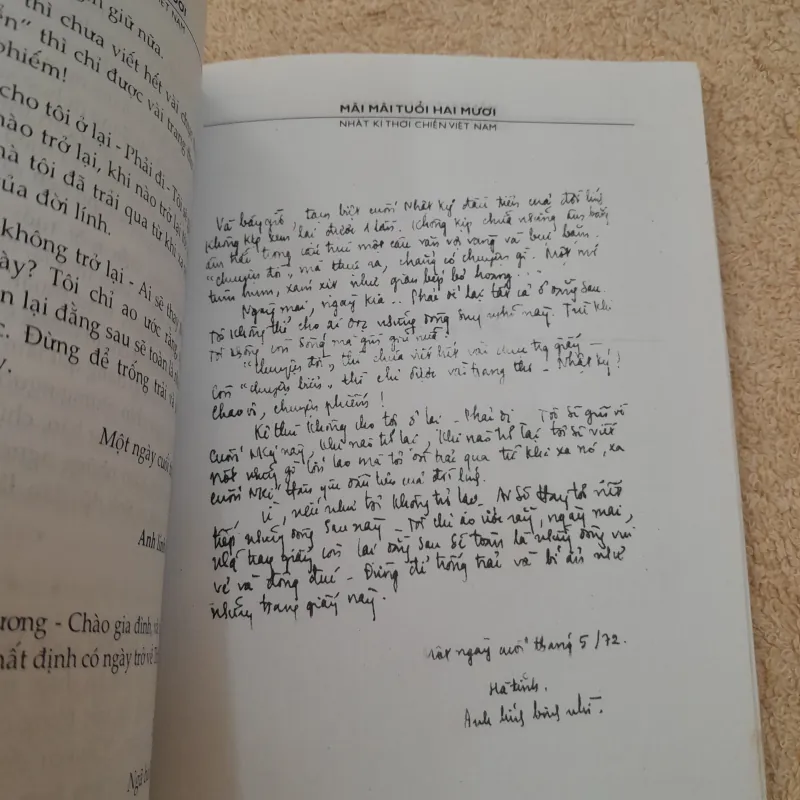 giữ nữa.
thì chưa viết hết vài chục
" thì chỉ được vài trang
phiếm!
cho tôi ở lại - Phải đi - Tôi sẽ
nào trở lại, khi nào trở lại
mà tôi đã trải qua từ khi xa
của đời lính.
không trở lại - Ai sẽ thay
này? Tôi chỉ ao ước rằng
còn lại đằng sau sẽ toàn là
Đừng để trống trải và
Một ngày cuối
Anh lính
ương - Chào gia đình,
nhất định có ngày trở về
VIỆT NAM
MÃI MÃI TUỔI HAI MƯƠI
NHẬT KÍ THỜI CHIẾN VIỆT NAM
Và bây giờ, tạm biệt cuốn Nhật ký đầu tiên của đời lính
Không kịp xem lại được 1 lần. Không kịp chữa những
trong câu một câu văn vội vàng và bực bằm.
"chuyện đời" mà thực ra, chẳng có chuyện gì. Một mớ
xám xịt như gian bếp bỏ hoang...
Ngày mai, ngày kia.. Phải để lại tất cả ở đằng sau.
Tôi không thể cho ai đọc những dòng suy nghĩ này. Trừ khi
Tôi không còn sống mà gìn giữ nữa.
"chuyện đời", thì chưa viết hết vài chục trang giấy -
Còn "chuyện biển" thì chỉ được vài trang thơ - Nhật ký!
Chao ôi, chuyện phiếm!
Kẻ thù không cho tôi ở lại - Phải đi - Tôi sẽ gửi về
cuốn NKý này, khi nào trở lại, khi nào trở lại tôi sẽ viết
nốt những gì lớn lao mà tôi đã trải qua từ khi xa nó, xa
cuốn NKí thân yêu đầu tiên của đời lính.
Ừ, nếu như tôi không trở lại - Ai sẽ thay tôi viết
tiếp những dòng sau này - Tôi chỉ ao ước rằng, ngày mai,
những trang giấy còn lại đằng sau sẽ toàn là những dòng vui
vẻ và đông đúc - Đừng để trống trải và bí ẩn như
những trang giấy này.
Một ngày cuối tháng 5/72.
Hà Tĩnh.
Anh lính binh nhì.